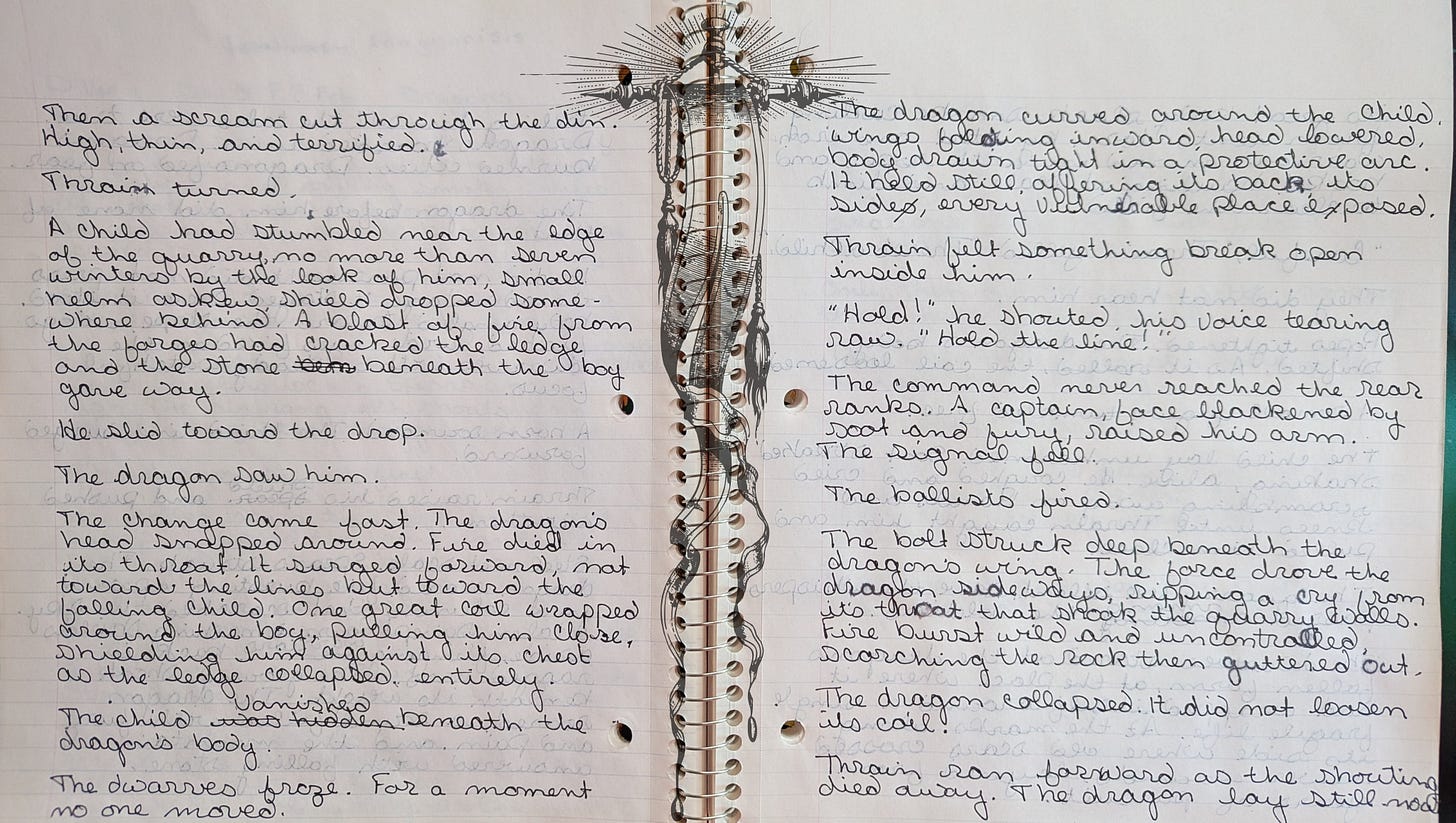 Then a scream cut through the din.
High, thin, and terrified.
Thrain turned.
A child had stumbled near the edge
of the quarry, no more than seven
winters by the look of him, small
helm askew shield dropped some-
where behind. A blast of fire from
the forges had cracked the ledge
and the stone beneath the boy
gave way.
He slid toward the drop.
The dragon saw him.
The change came fast. The dragon's
head snapped around. Fire died in
its throat. It surged forward, not
toward the lines but toward the
falling child. One great coil wrapped
around the boy, pulling him close,
shielding him against its chest
as the ledge collapsed entirely.
vanished
The child was hidden beneath the
dragon's body.
The dwarves froze. For a moment
no one moved.
The dragon curved around the Child,
wings folding inward, head lowered,
body drawn tight in a protective arc.
It held still, offering its back, its
sides, every vulnerable place exposed.
Thrain felt something break open
inside him.
"Hold!" he shouted, his voice tearing
raw. "Hold the line!"
The command never reached the rear
ranks. A captain, face blackened by
soot and fury, raised his arm.
The signal fell.
The ballista fired.
The bolt struck deep beneath the
dragon's wing. The force drove the
dragon sideways, ripping a cry from
its throat that shook the quarry walls.
Fire burst wild and uncontrolled,
scorching the rock then guttered out.
The dragon collapsed. It did not loosen
its coil.
Thrain ran forward as the shouting
died away. The dragon lay still